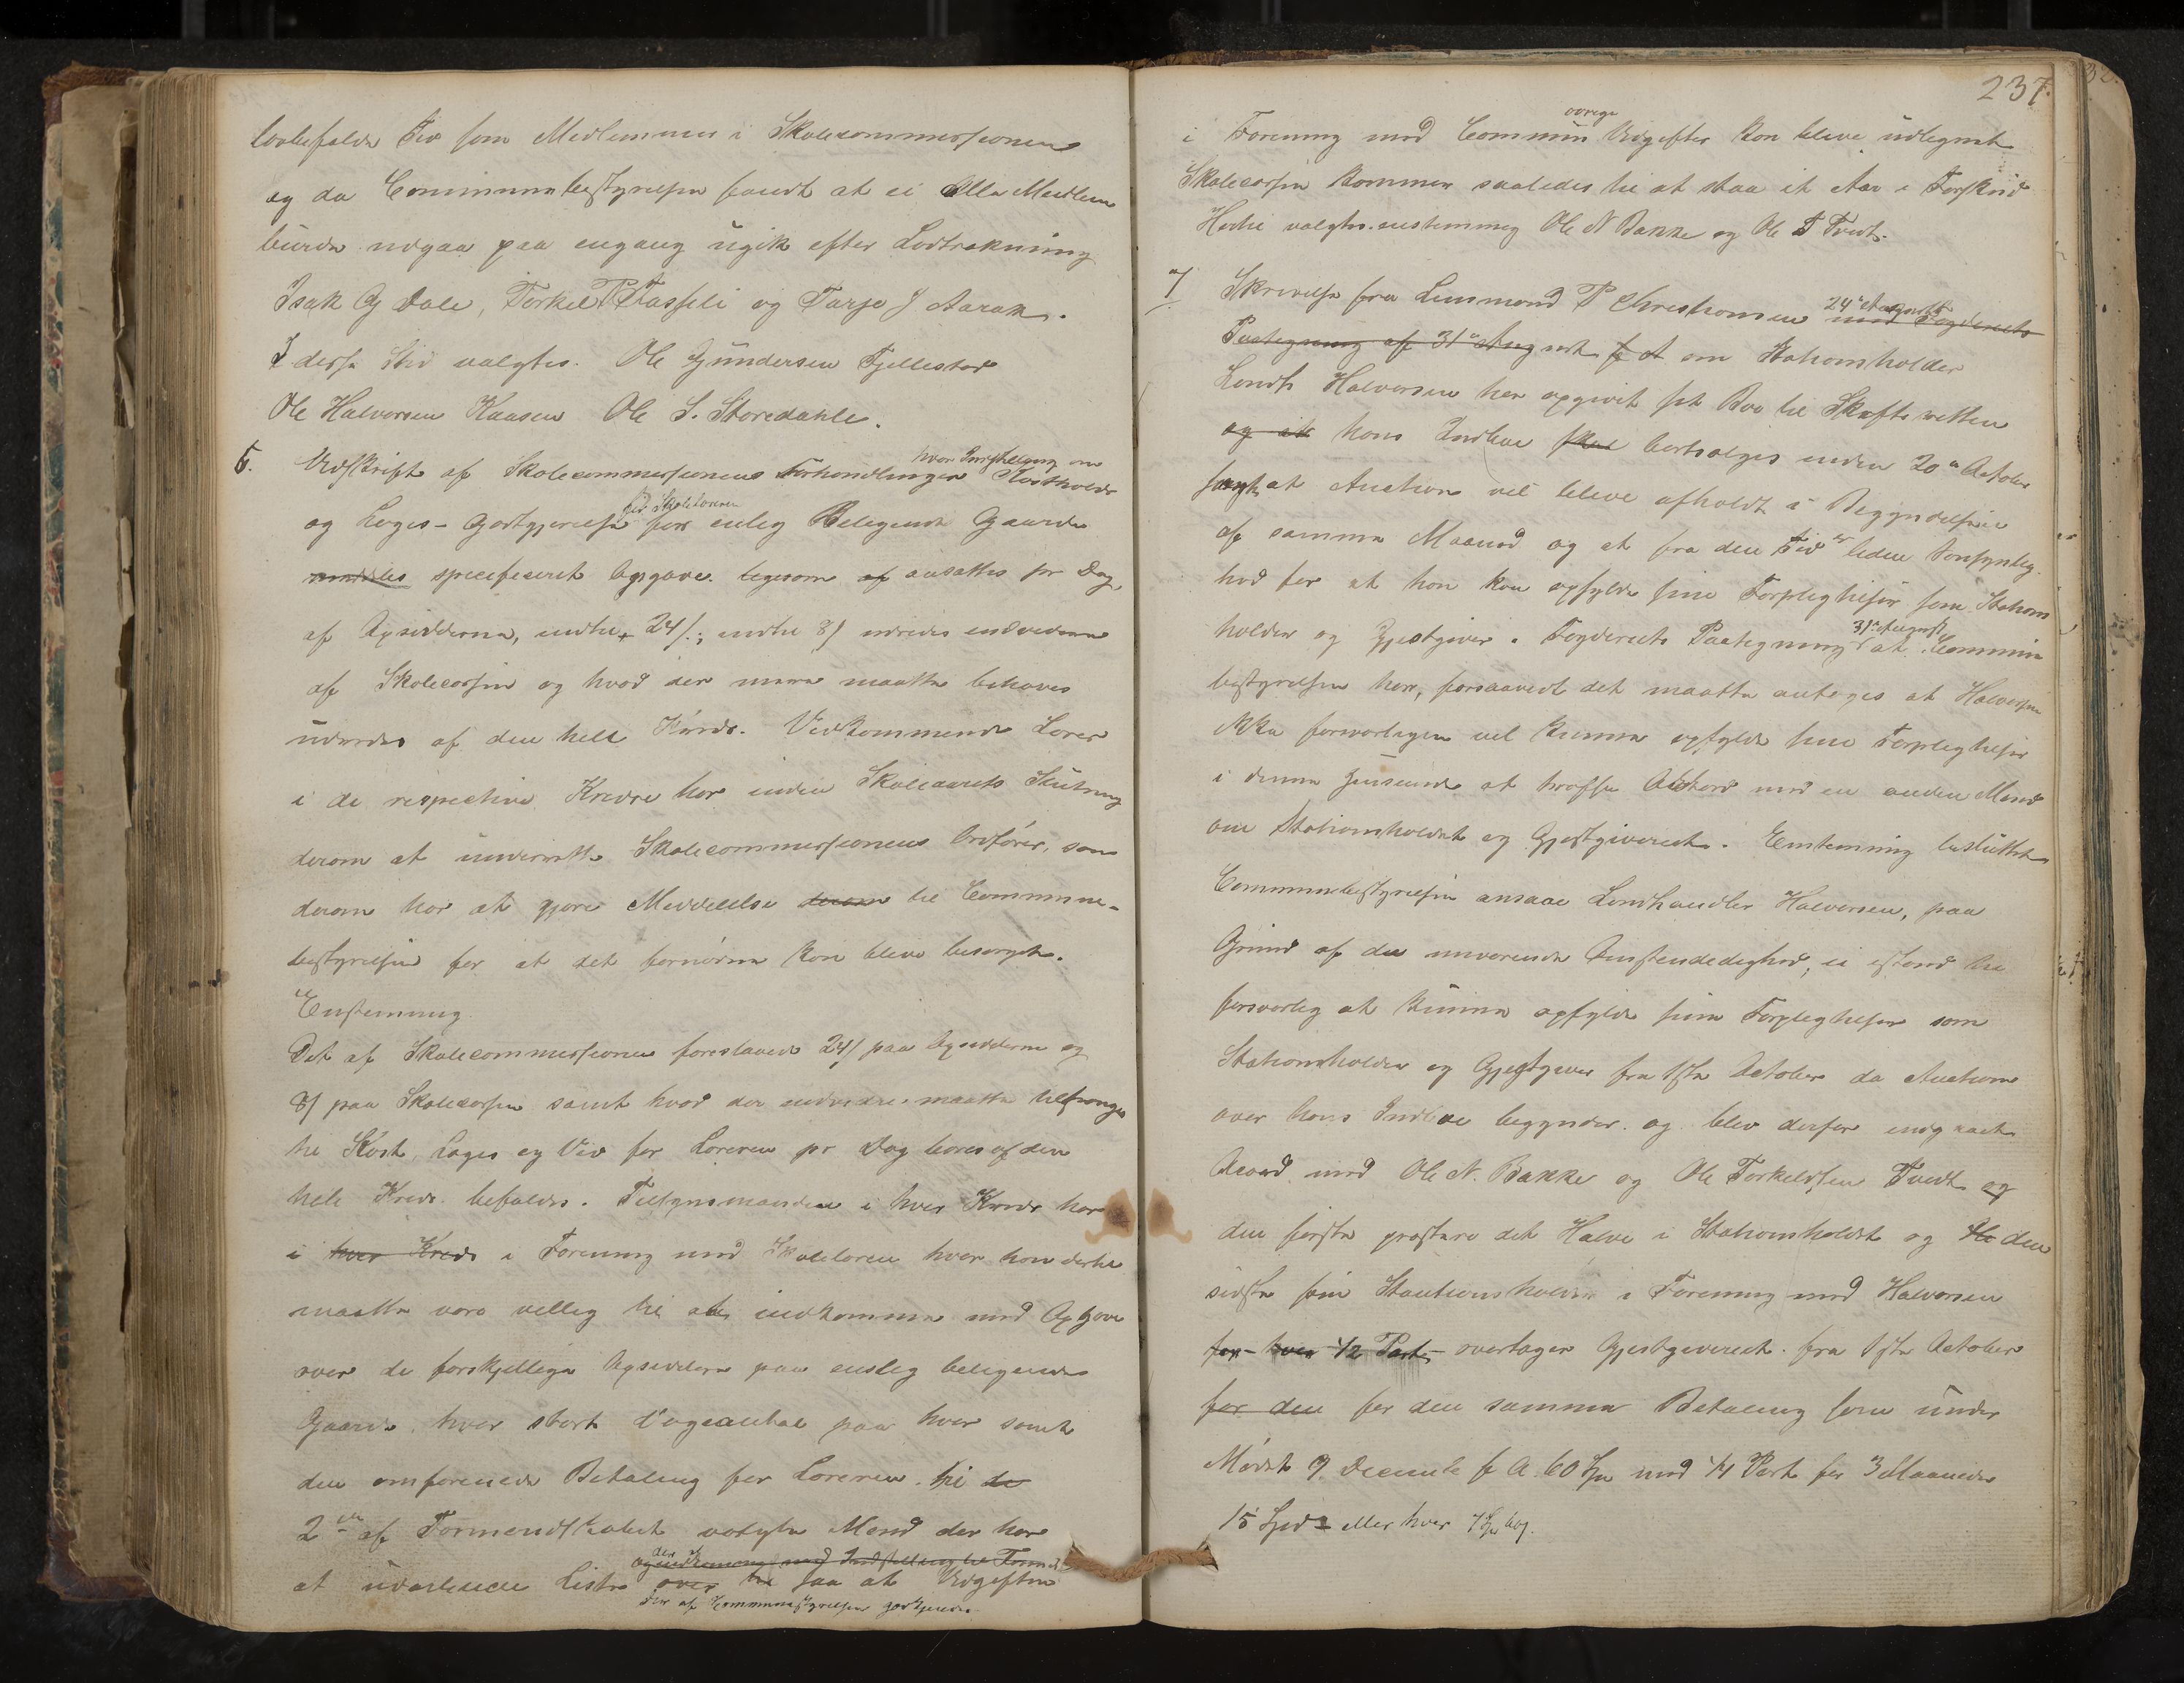 lovbefalede Tid som Medlemmer i Skolecommissionen
og da Communebestyrelsen fandt at ei Alle Medlem
burde udgaa paa engang ugik efter Lodtrækning
Isak G Dale, Torkel Tasseli og Tarje J Aarak.
I disse Sted valgtes. Ole Gundersen Fjellestad
Ole Halvorsen Kaasen Ole S. Storedahle.
6. Udskrift af Skolecommissionens Forhandlinger hvori Indstilling om Kosthold
og Loges-Godtgjørelse for Skolelæreren for enlig Beligende Gaarde
meddeles specificeret Opgave. ligesom af ansattes pr Dag
af Opsidderne, indtil 24/.; indtil 8/ udredes endvidere
af Skolecassen og hvad der mere maatte behøves
udredes af den hele Kreds. Vedkommende Lærer
i de respective Kredse har inden Skoleaarets Slutning
derom at underrette Skolecommissionens Ordfører, som
derom har at gjøre Meddelelse derom til Commune-
bestyrelsen for at det fornødne kan blive besørget.
Enstemmig
Det af Skolecommissionen foreslaaede 24/ paa Opsidderne og
8/ paa Skolecassen samt hvad der endvidere maatte tiltrænges
til Kost, Loges og Ved for Læreren pr Dag bæres af den
hele Kreds befaldes. Tilsynsmanden i hver Kreds har
i hver Kreds i Forening med Skolelæren hvor han dertil
maatte være villig til at indkomme med Opgave
over de forskjellige Opsiddere paa enslig beligende
Gaarde, hvor stort Dageantal paa hver samt
den omforenede Betaling for Læreren. til de
2de af Formendskabet valgte Mend der har
og der indkomme med Indstilling til Formd
at udarbeide Liste over til saa at Udgiften
der af Communestyrelsen godkjendes
237.
i Forening med Commun øvrige Udgifter kan blive udlegnet
Skolecassen kommer saaledes til at staa et Aar i Forskud
Hertil valgtes enstemmig Ole N Bakke og Ole T Tvedt.
7 Skrivelse fra Lensmand P Christiansen 24de August med Fogderiets
Paategning af 31te Aug sidst f A om Stationsholder
Landh Halvorsen har opgivet sit Boe til Skifteretten
og at hans Indboe skal bortsælges inden 20de October
samt at Auction vil blive afholdt i Begyndelsen
af samme Maaned og at fra den Tid er liden Sansynlig-
hed for at han kan opfylde sine Forpligtelser som Stations
holder og Gjestgiver. Fogderiets Paategning 31te August at Commune
bestyrelsen har, forsaavidt det maatte antages at Halvorsen
ikke forsvarligen vil kunne opfylde sine Forpligtelser
i denne Henseende at træffe Akkord med en anden Mand
om Stationsholdet og Gjestgiveriet. Enstemmig besluttet
Communebestyrelsen ansaae Landhandler Halvorsen, paa
Grund af de nuværende Omstændedighed, ei istand til
forsvarlig at kunne opfylde sine Forpligtelser som
Stationsholder og Gjestgiver fra 1ste October da Auction
over hans Indboe begynder. og blev derfor indgaaet
Acord med Ole N. Bakke og Ole Torkeldsen Tvedt og
den første præstere det Halve i Stationsholdet og Ole den
sidste som Stationsholder i Forening med Halvorsen
for hver 1/2 Part overtager Gjestgiveriet. fra 1ste October
for den for den samme Betaling som under
Mødet 9 Decembr f A 60 Spd med 1/4 Part for 3 Maaneder
15 Spd eller hver 7 Spd 60/.